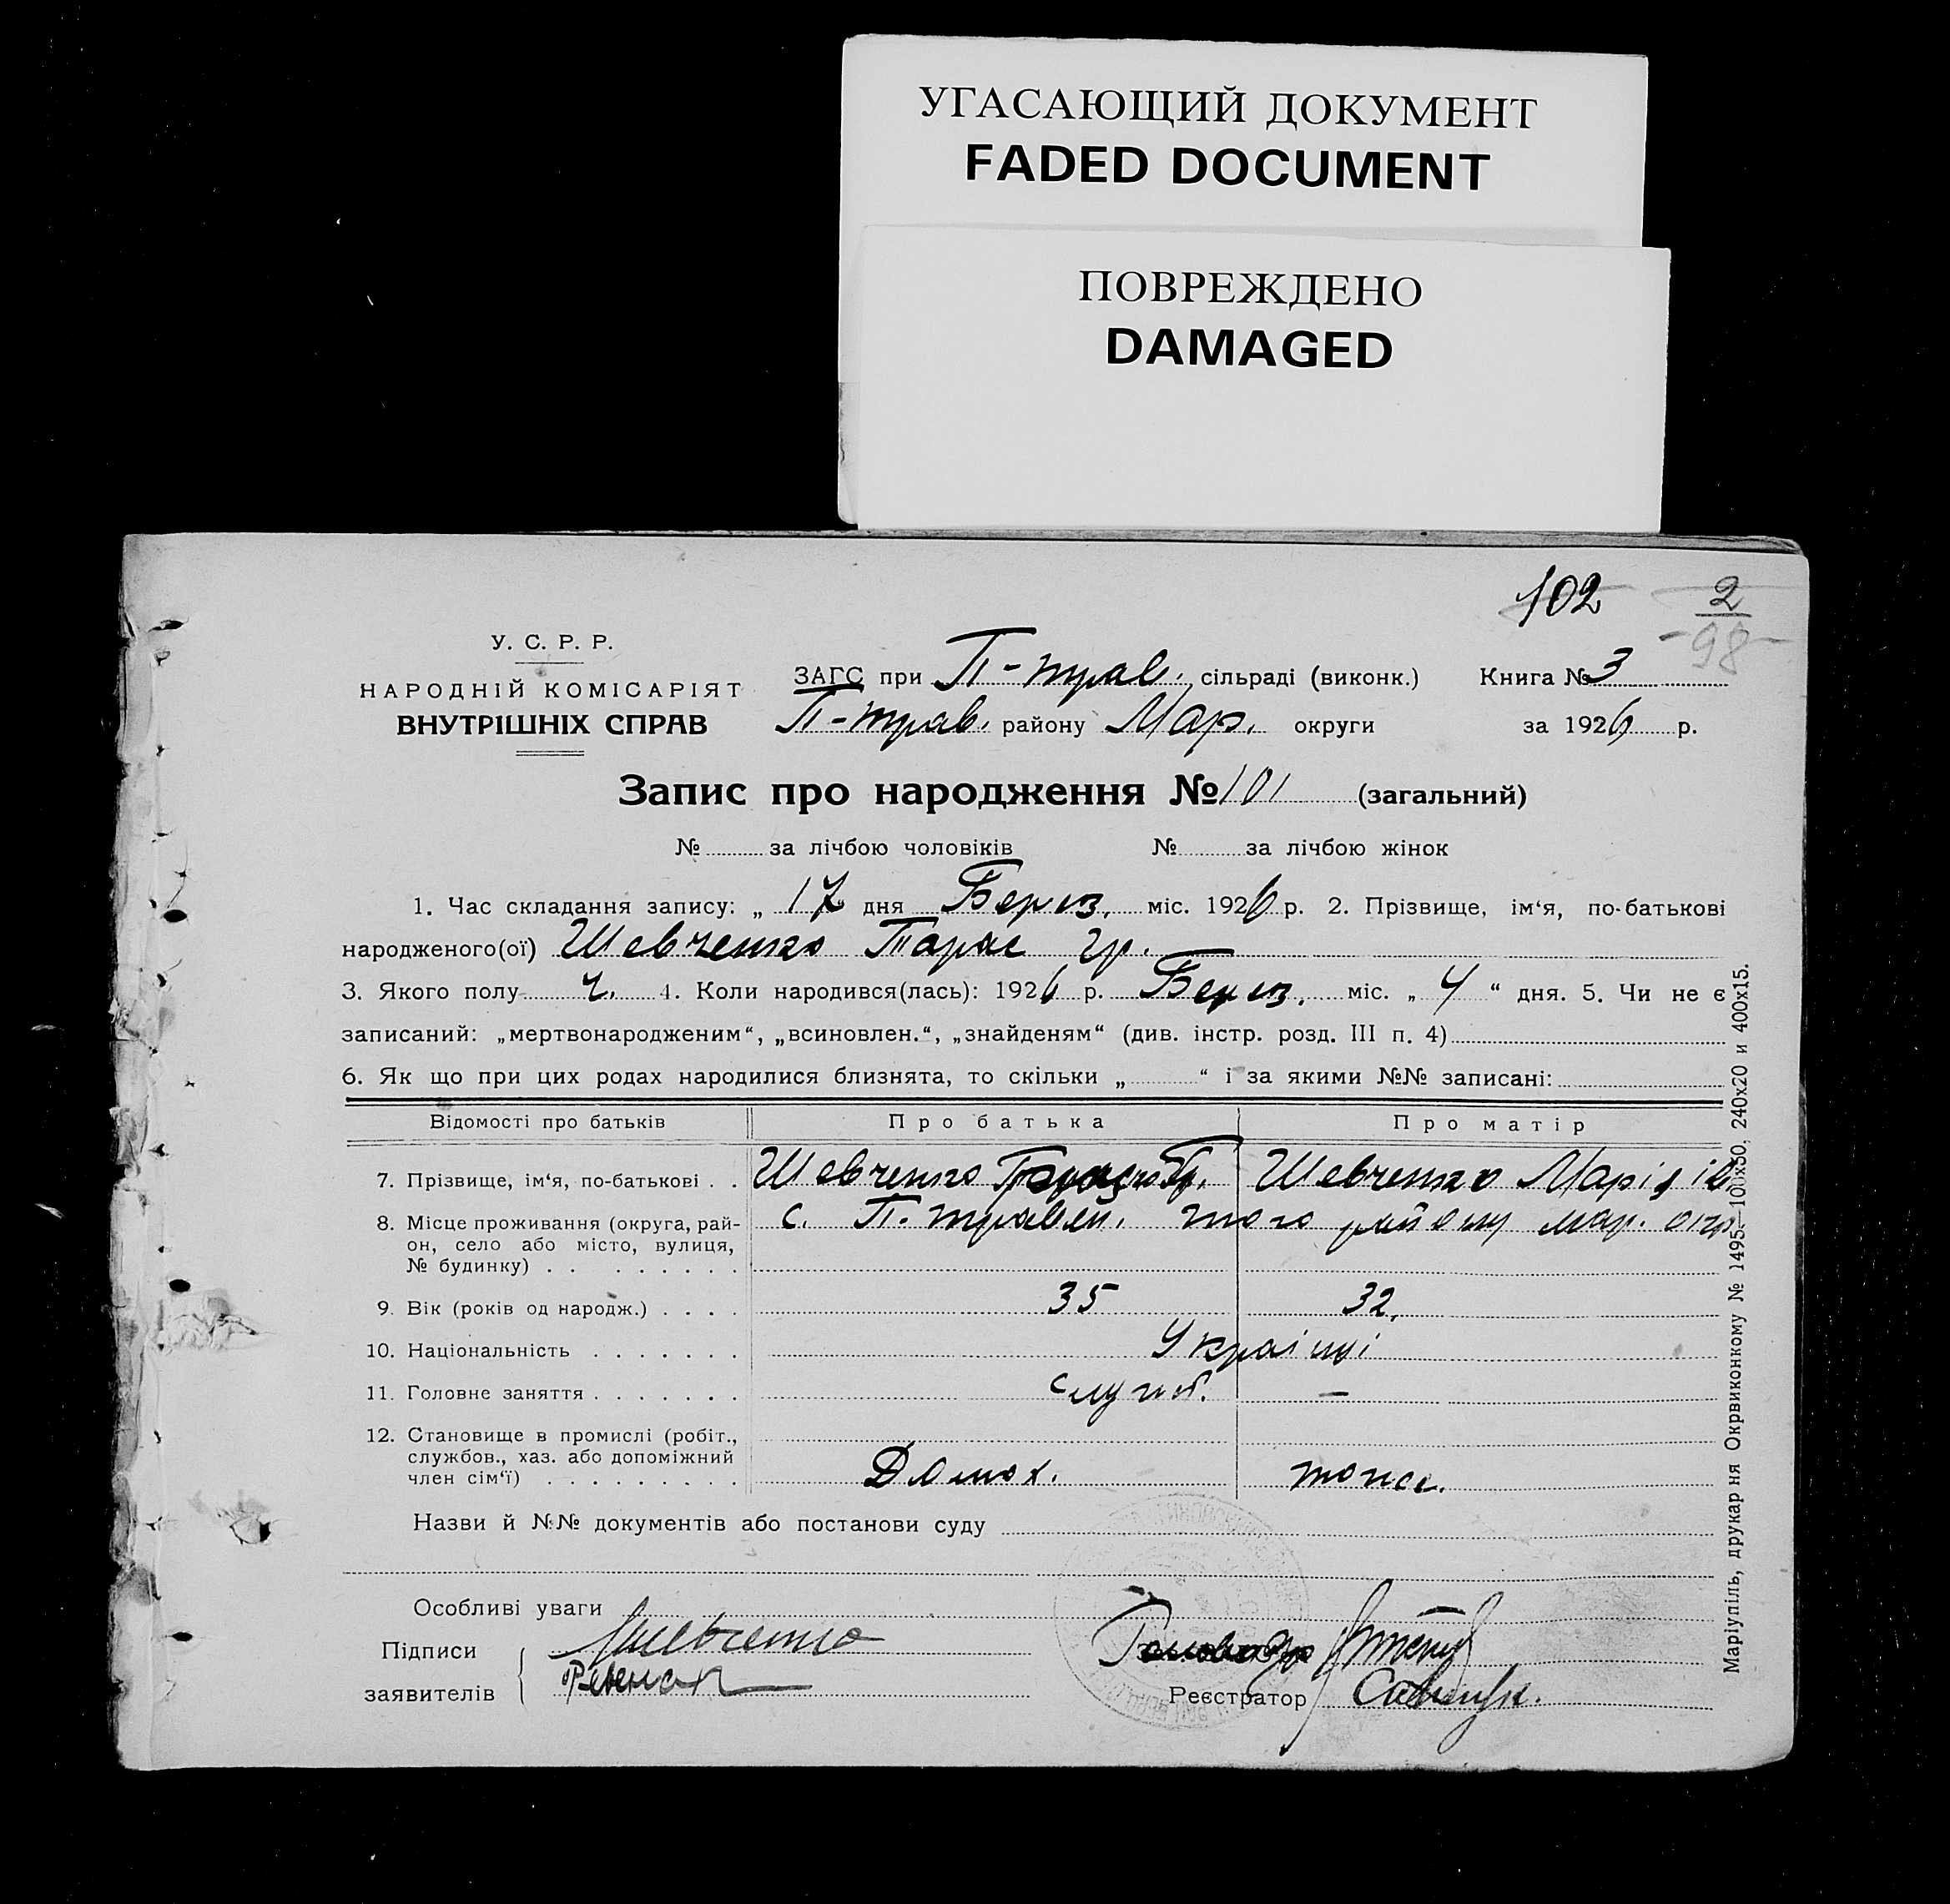 УГАСАЮЩИЙ ДОКУМЕНТ
FADED DOCUMENT
ПОВРЕЖДЕНО
DAMAGED
102 2
98
У. С. Р. Р.
НАРОДНІЙ КОМІСАРІЯТ
ВНУТРІШНІХ СПРАВ
ЗАГС при П-трав. сільраді (виконк.) Книга № 3
П-трав. району Мар. округи за 1926 р.
Запис про народження № 101 (загальний)
№ за лічбою чоловіків № за лічбою жінок
1. Час складання запису: „ 17 дня Берез. міс. 1926 р. 2. Прізвище, ім‘я, по-батькові
народженого(ої) Шевченко Тарас Гр.
3. Якого полу ч. 4. Коли народився(лась): 1926 р. Берез. міс. „ 4 “ дня. 5. Чи не є
записаний: „мертвонародженим“, „всиновлен.“, „знайденям“ (див. інстр. розд. III п. 4)
6. Як що при цих родах народилися близнята, то скільки „ “ і за якими №№ записані:
Відомості про батьків Про батька Про матір
7. Прізвище, ім‘я, по-батькові . . Шевченко Гр. Шевченко Марія Ів
8. Місце проживання (округа, рай-
он, село або місто, вулиця,
№ будинку) . . . . . . . . .
с. П. травен. того району мар. окр
9. Вік (років од народж.) . . . . 35 32.
10. Національність . . . . . . . Українці
11. Головне заняття . . . . . . . служб. —
12. Становище в промислі (робіт.,
службов., хаз. або допоміжний
член сім‘ї) . . . . . . . . .
Домох. тоже.
Назви й №№ документів або постанови суду
Особливі уваги
Підписи
заявителів
Шевченко
Реєстратор
Маріупіль, друкарня Окрвиконкому № 1495—100х50, 240х20 и 400х15.